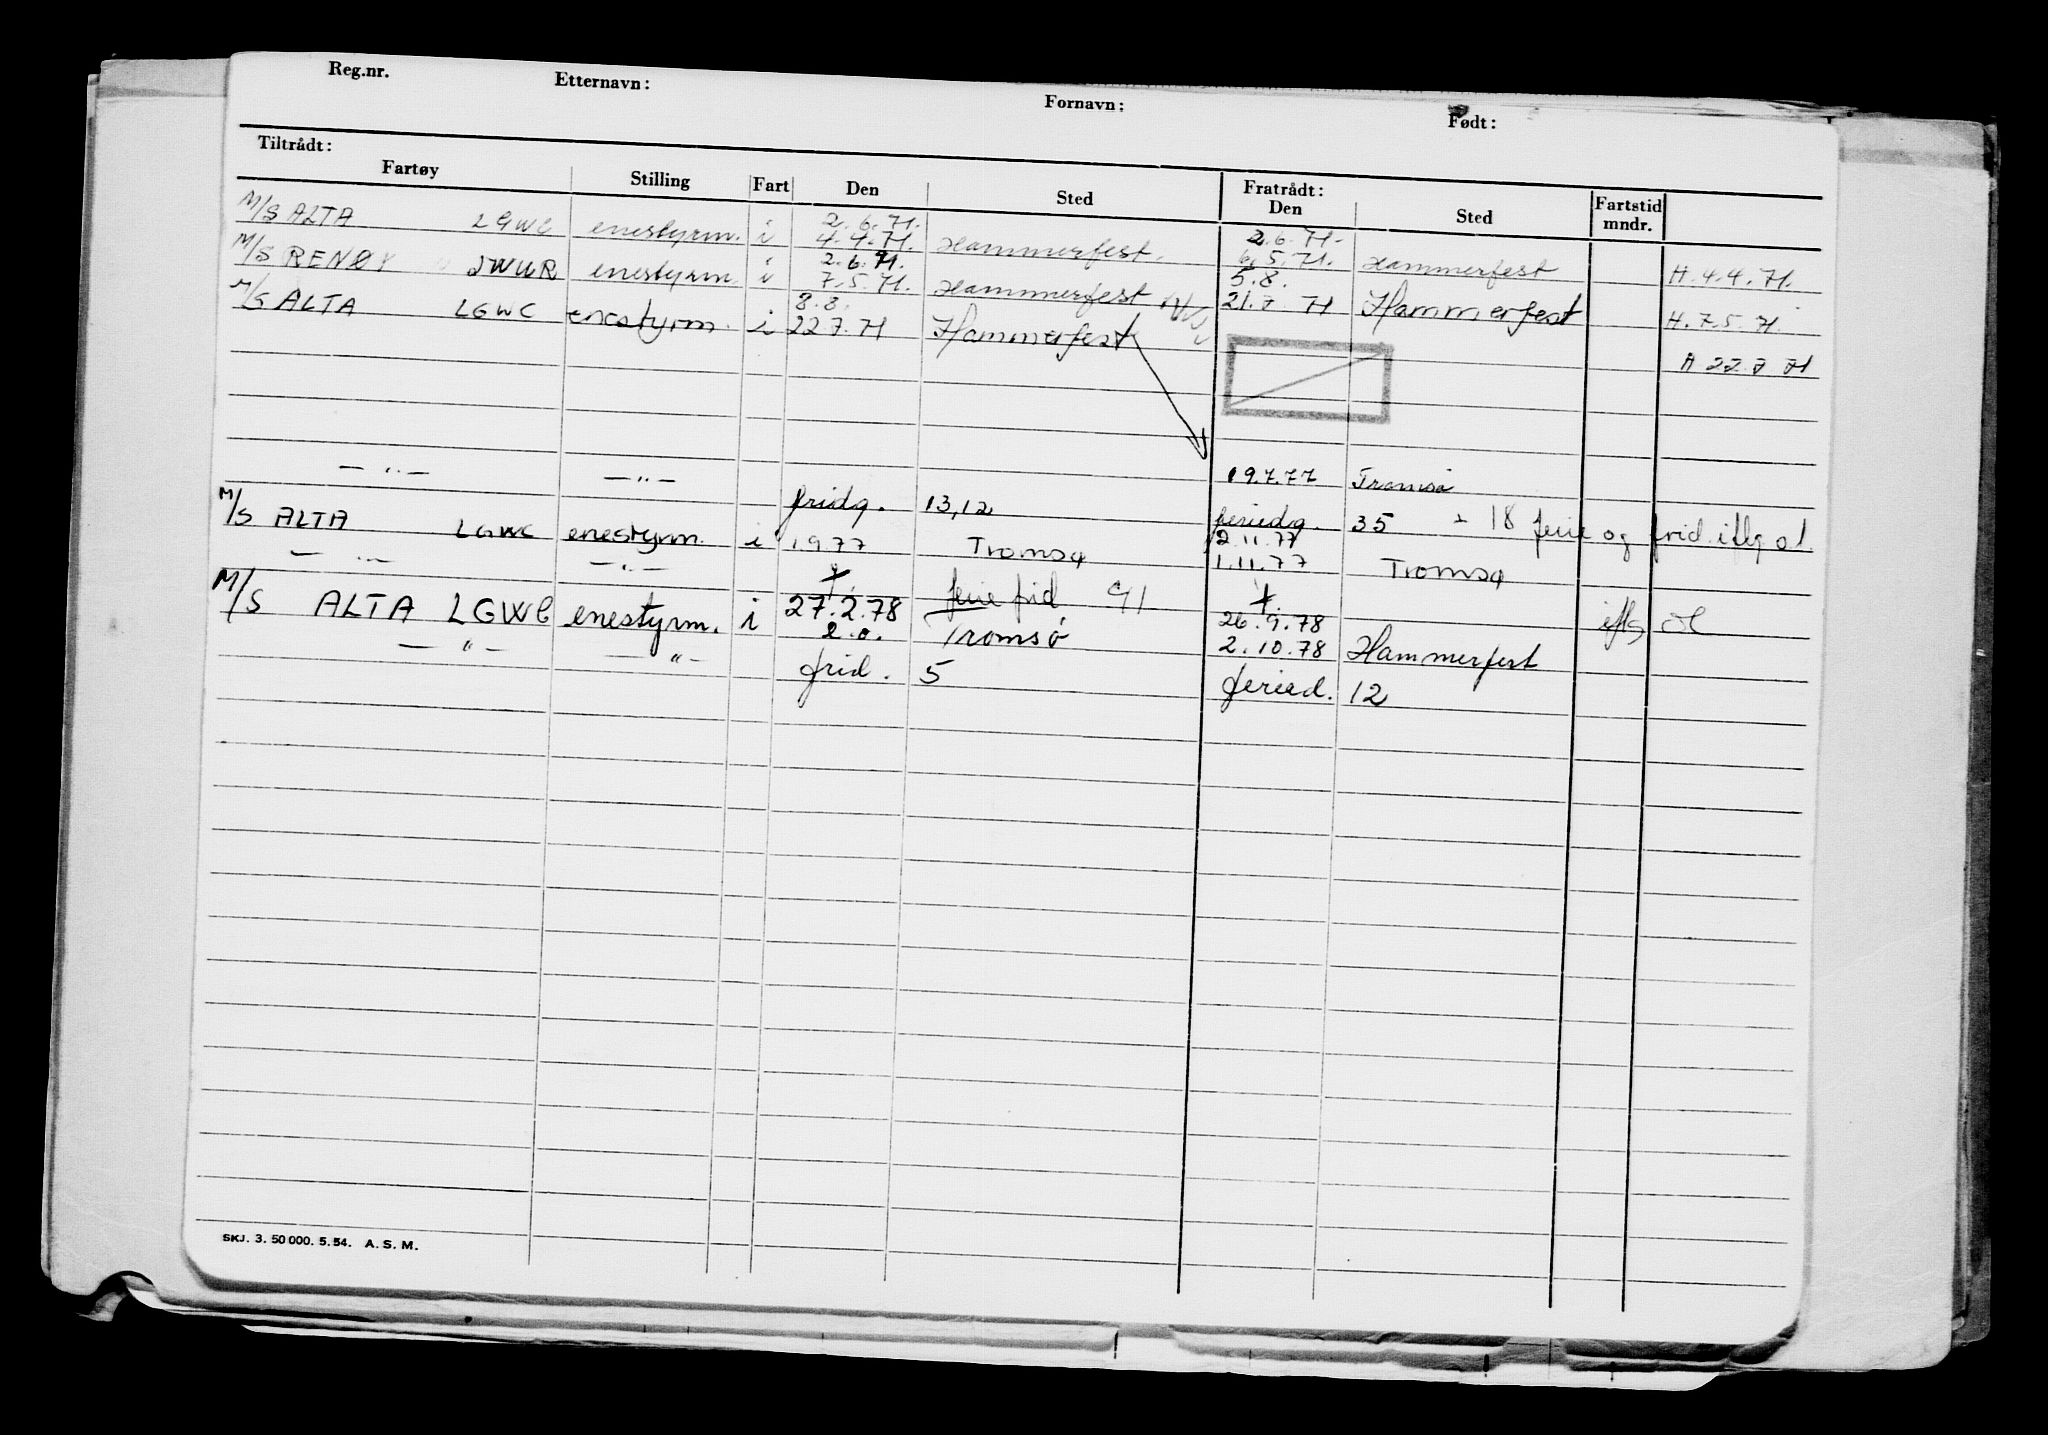 Reg.nr. Etternavn: Fornavn: Født:
Tiltrådt: Fratrådt:
Fartøy Stilling Fart Den Sted Den Sted Fartstid mndr.
2.6.71. 2.6.71-
M/S ALTA LGWC enestyrm. i 4.4.71. Hammerfest. 6.5.71. Hammerfest H.4.4.71.
i 2.6.71. 5.8.
M/S RENØY JWUR enestyrm. i 7.5.71. Hammerfest 21.7.71 Hammerfest H.7.5.71.
8.8.
M/S ALTA LGWC enestyrm. i 22.7.71 Hammerfest A 22.7.71
— " — — " — 19.7.77 Tromsø
fridg. 13,12 feriedg. 35 + 18 ferie og frid. iflg ol.
2.11.77
M/S ALTA LGWC enestyrm. i 1.9.77 Tromsø 1.11.77 Tromsø
— " — — " —
ferie frid 91
M/S ALTA LGWC enestyrm. i 27.2.78 Tromsø 26.9.78 iflg ol
— " — — " — e.o. 2.10.78 Hammerfest
frid. 5 feried. 12
SKJ. 3. 50 000. 5. 54. A. S. M.